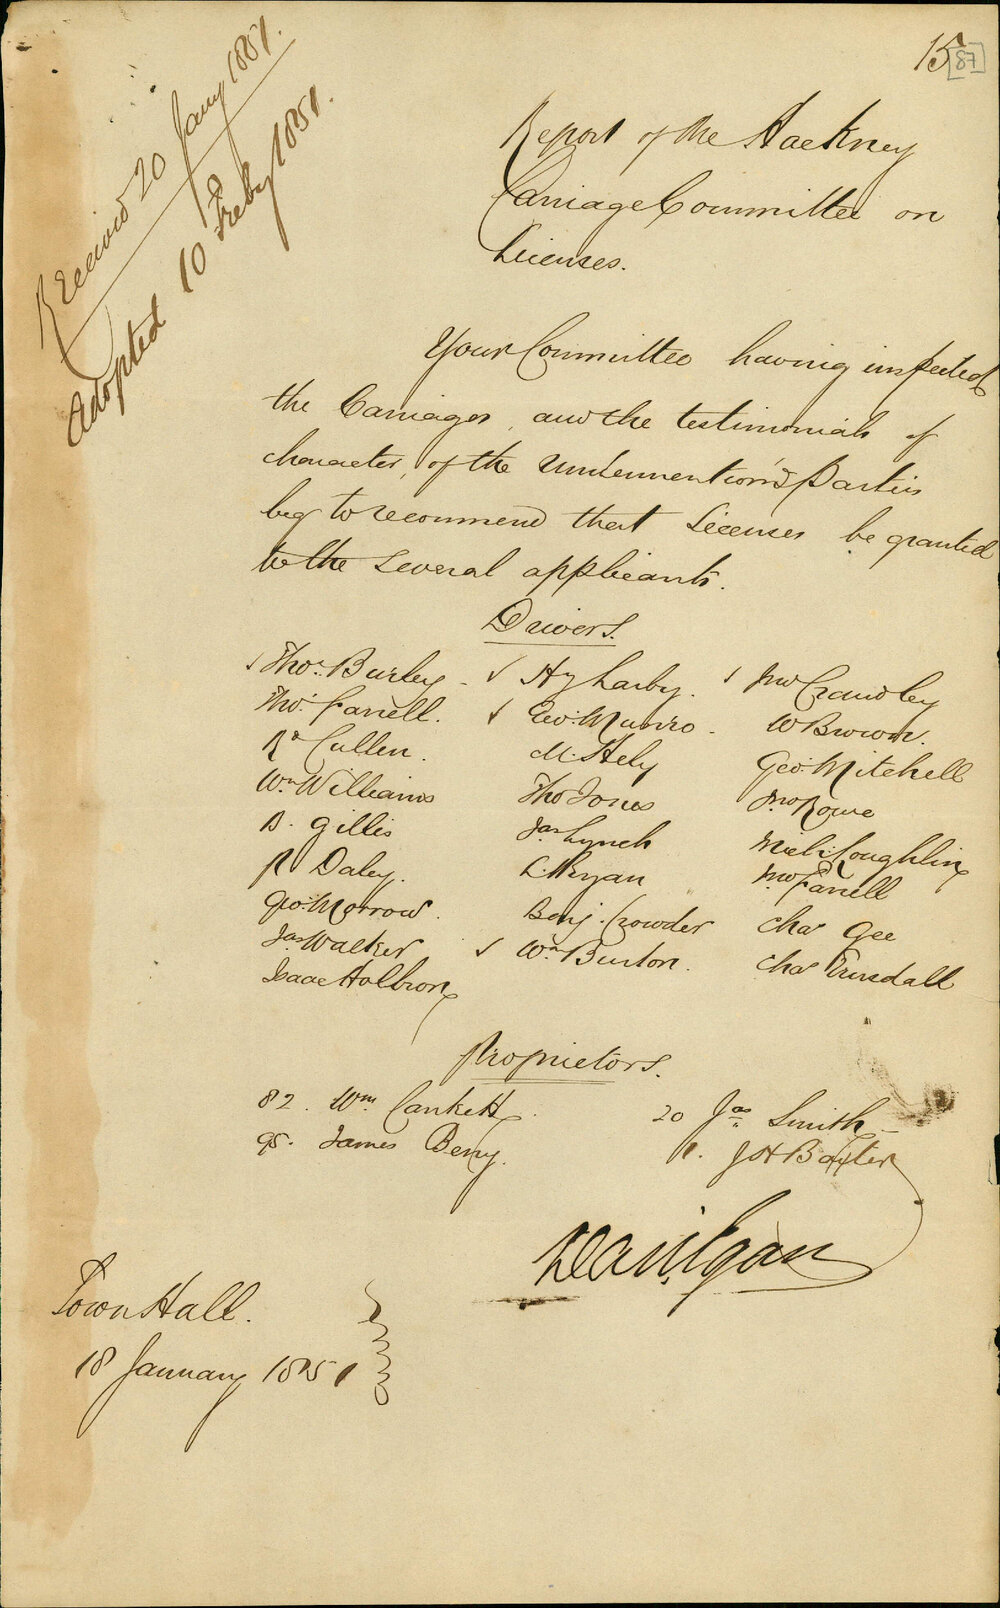 15 [87]
Received 20 Jany 1851.
Adopted 10 Feby 1851.
Report of the Hackney
Carriage Committee on
Licenses.
Your Committee having inspected
the Carriages, and the testimonials of
character, of the Undermention'd Parties
beg to recommend that Licenses be granted
to the several applicants.
Drivers.
Thos. Burley - Hy Larby. Jno Crawley
Thos. Farrell. Geo: Munro. W Brown.
Rd Cullen. M. Hely Geo: Mitchell
Wm Williams Tho Jones Jno Rowe
B. Gillis Jas Lynch Mich: Coughlin
P Daley. L. Ryan Jno Farrell
Geo: Morrow. Benj. Crowder Chas Gee
Jas Walker Wm Burton. Chas Trusdall
Isaac
Proprietors.
82. Wm. 20 Jas Smith -
95. James Berry. 1. J H Baxter
Dan Egan
Town Hall.
18 January 1851